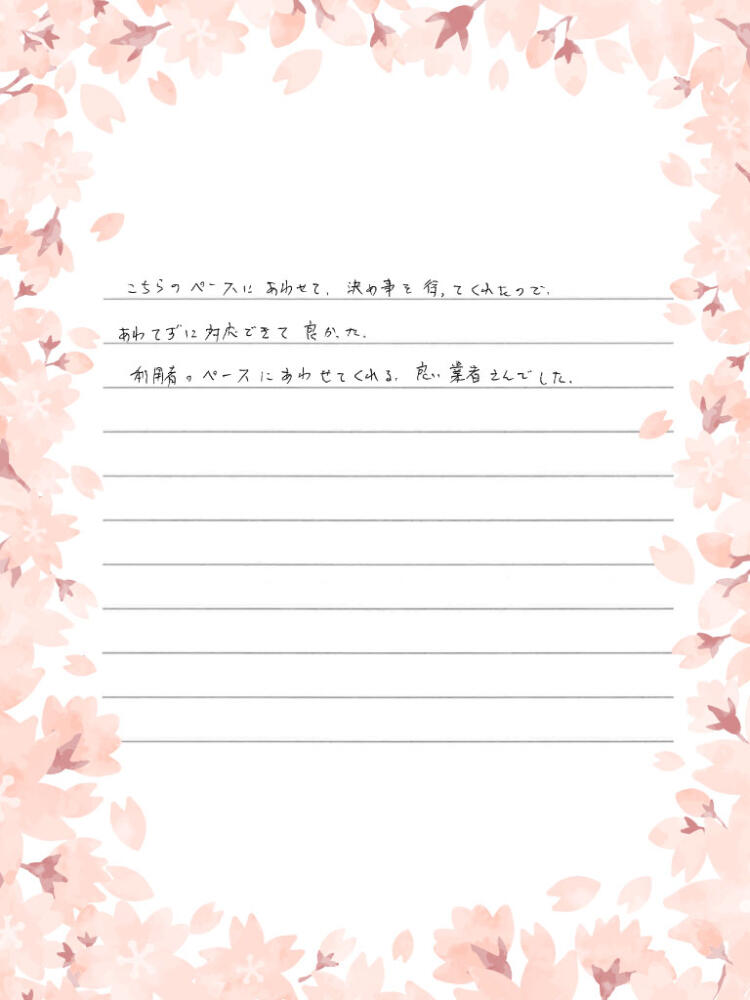 こちらのペースにあわせて、決め事を待ってくれたので、
あわてずに対応できて良かった。
利用者のペースにあわせてくれる、良い業者さんでした。